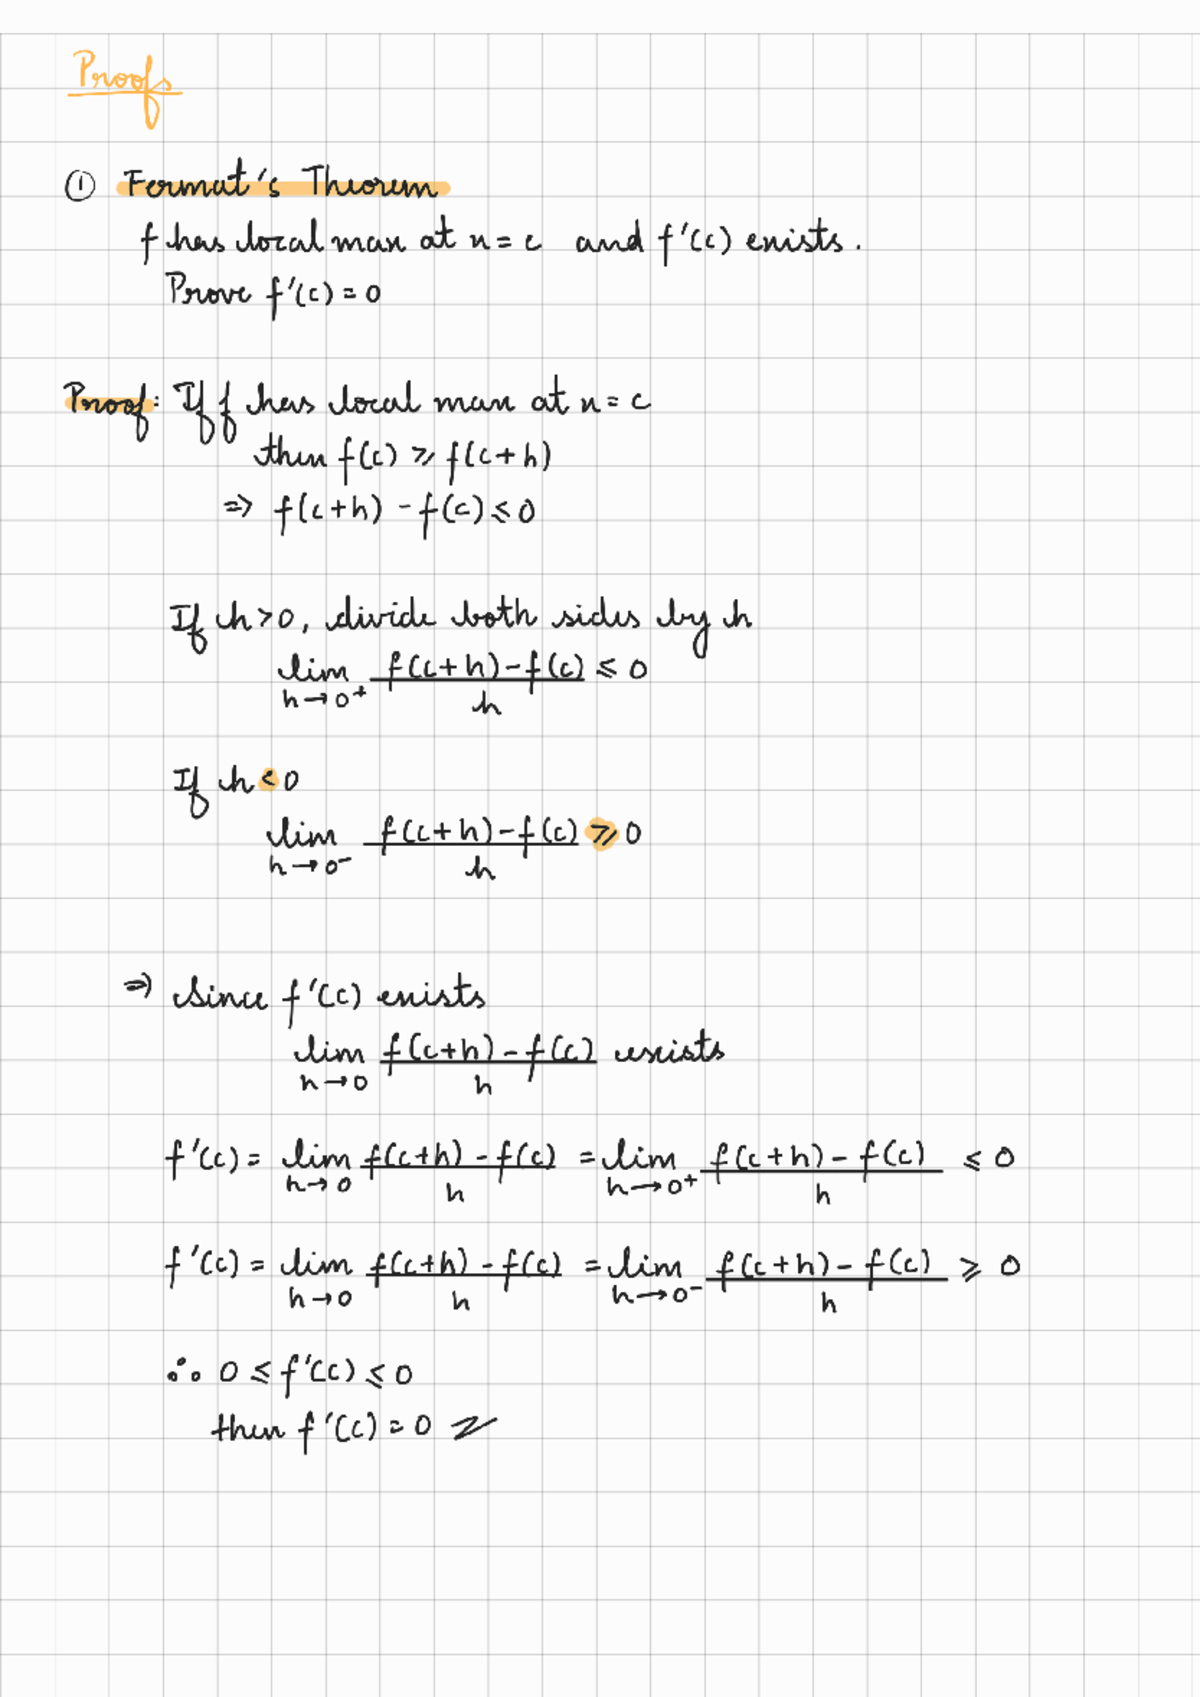 Proofs
① Fermat's Theorem
f has local max at x = c and f'(c) exists.
Prove f'(c) = 0
Proof: If f has local max at x = c
then f(c) ⩾ f(c+h)
⇒ f(c+h) - f(c) ⩽ 0
If h > 0, divide both sides by h
lim h→0⁺ (f(c+h) - f(c))/h ⩽ 0
If h < 0
lim h→0⁻ (f(c+h) - f(c))/h ⩾ 0
⇒ Since f'(c) exists
lim h→0 (f(c+h) - f(c))/h exists
f'(c) = lim h→0 (f(c+h) - f(c))/h = lim h→0⁺ (f(c+h) - f(c))/h ⩽ 0
f'(c) = lim h→0 (f(c+h) - f(c))/h = lim h→0⁻ (f(c+h) - f(c))/h ⩾ 0
∴ 0 ⩽ f'(c) ⩽ 0
then f'(c) = 0